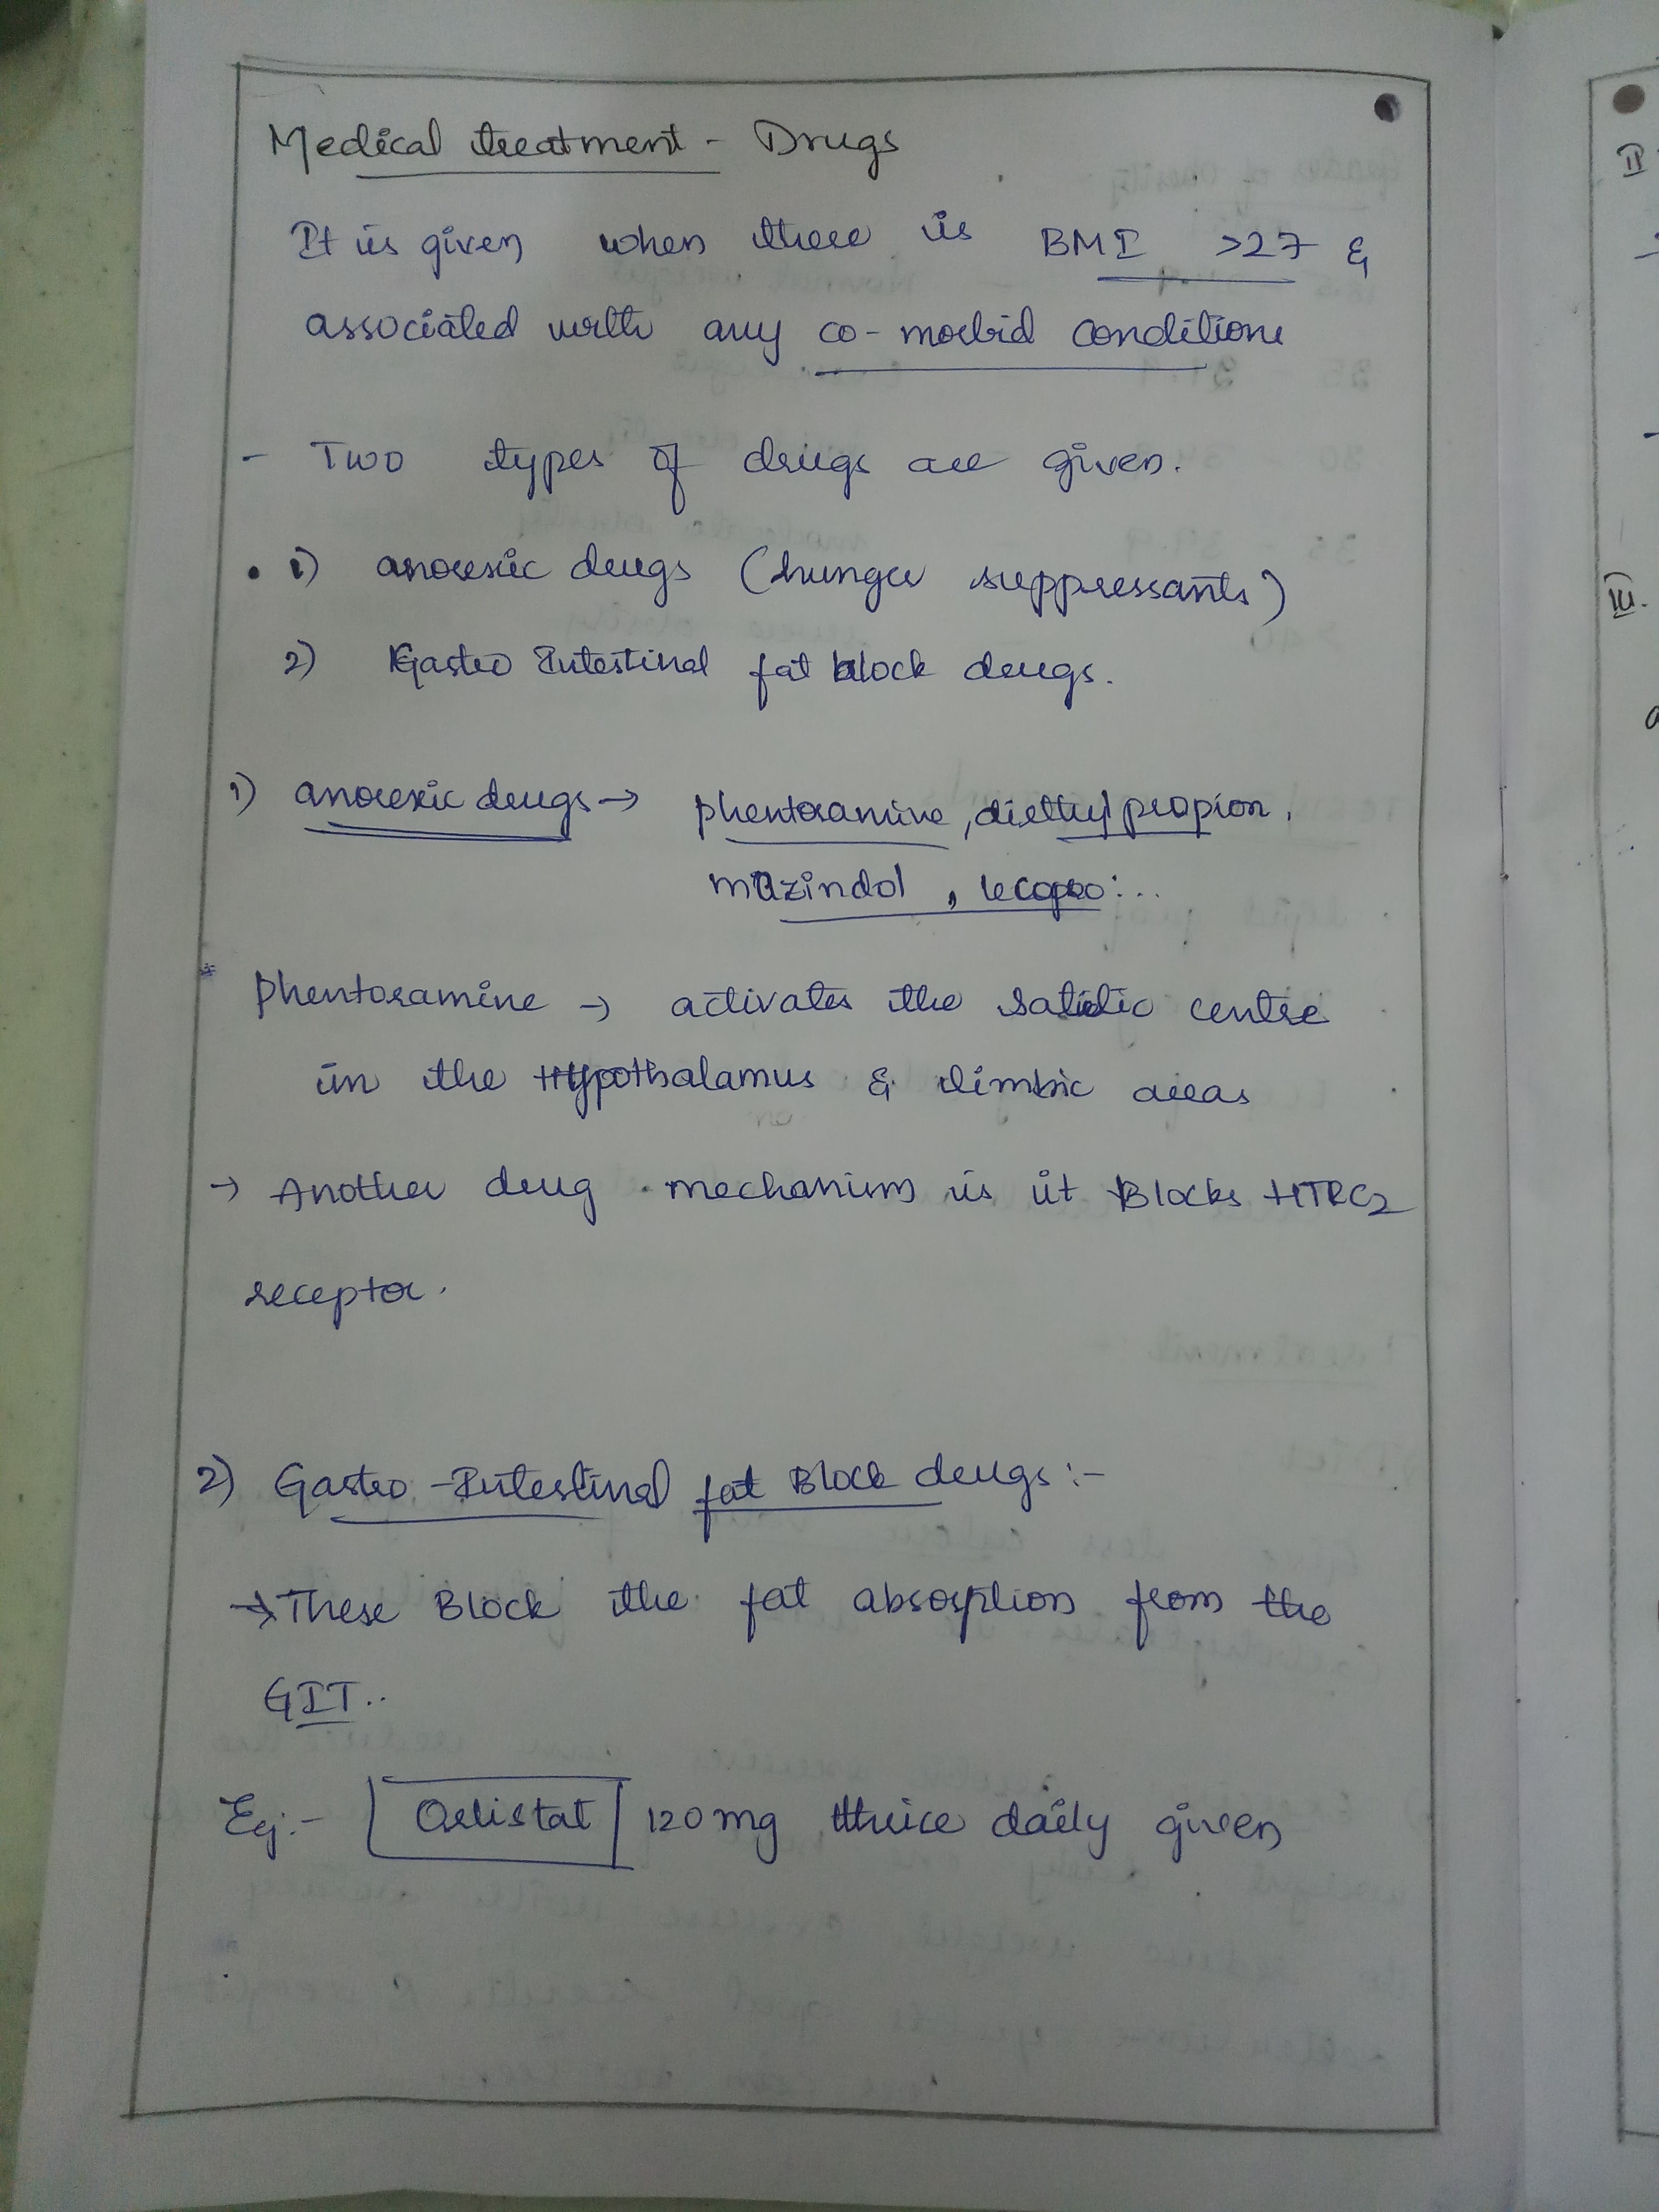 Medical treatment - Drugs
It is given when there is BMI >27 &
associated with any co-morbid conditions
- Two types of drugs are given.
• 1) anorexic drugs (hunger suppressants)
2) Gastro Intestinal fat block drugs.
1) anorexic drugs → phentoramine, diethyl propion,
mazindol,
* phentoramine → activates the centre
in the Hypothalamus & limbic areas
→ Another drug mechanism is it Blocks HTRC2
receptor.
2) Gastro-Intestinal fat Block drugs :-
→ These Block the fat absorption from the
GIT..
Eg:- Orlistat 120 mg thrice daily given
II
III.